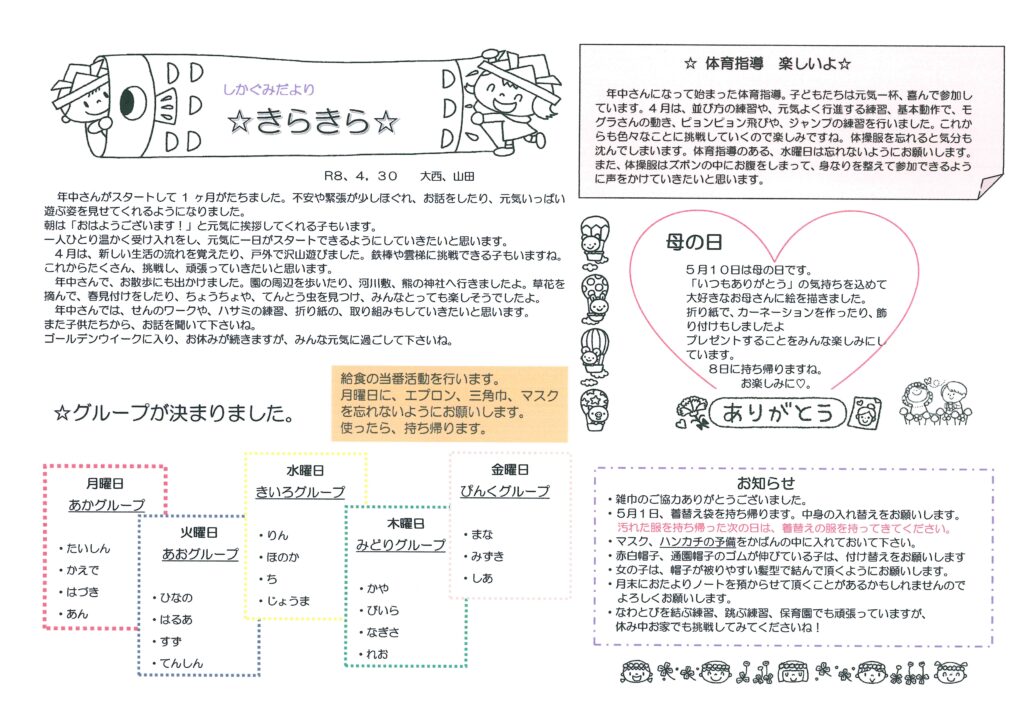 しかぐみだより
☆きらきら☆
R8、4，30　大西、山田
年中さんがスタートして 1 ヶ月がたちました。不安や緊張が少しほぐれ、お話をしたり、元気いっぱい
遊ぶ姿を見せてくれるようになりました。
朝は「おはようございます！」と元気に挨拶してくれる子もいます。
一人ひとり温かく受け入れをし、元気に一日がスタートできるようにしていきたいと思います。
４月は、新しい生活の流れを覚えたり、戸外で沢山遊びました。鉄棒や雲梯に挑戦できる子もいますね。
これからたくさん、挑戦し、頑張っていきたいと思います。
年中さんで、お散歩にも出かけました。園の周辺を歩いたり、河川敷、熊の神社へ行きましたよ。草花を
摘んで、春見付けをしたり、ちょうちょや、てんとう虫を見つけ、みんなとっても楽しそうでしたよ。
年中さんでは、せんのワークや、ハサミの練習、折り紙の、取り組みもしていきたいと思います。
また子供たちから、お話を聞いて下さいね。
ゴールデンウイークに入り、お休みが続きますが、みんな元気に過ごして下さいね。
給食の当番活動を行います。
月曜日に、エプロン、三角巾、マスク
を忘れないようにお願いします。
使ったら、持ち帰ります。
☆グループが決まりました。
月曜日
あかグループ
・たいしん
・かえで
・はづき
・あん
火曜日
あおグループ
・ひなの
・はるあ
・すず
・てんしん
水曜日
きいろグループ
・りん
・ほのか
・ち
・じょうま
木曜日
みどりグループ
・かや
・ぴいら
・なぎさ
・れお
金曜日
ぴんくグループ
・まな
・みずき
・しあ
☆ 体育指導　楽しいよ☆
年中さんになって始まった体育指導。子どもたちは元気一杯、喜んで参加し
ています。４月は、並び方の練習や、元気よく行進する練習、基本動作で、モ
グラさんの動き、ピョンピョン飛びや、ジャンプの練習を行いました。これか
らも色々なことに挑戦していくので楽しみですね。体操服を忘れると気分も
沈んでしまいます。体育指導のある、水曜日は忘れないようにお願いします。
また、体操服はズボンの中にお腹をしまって、身なりを整えて参加できるよう
に声をかけていきたいと思います。
母の日
５月１０日は母の日です。
「いつもありがとう」の気持ちを込めて
大好きなお母さんに絵を描きました。
折り紙で、カーネーションを作ったり、飾
り付けもしましたよ
プレゼントすることをみんな楽しみにし
ています。
８日に持ち帰りますね。
お楽しみに♡。
ありがとう
お知らせ
・雑巾のご協力ありがとうございました。
・５月１日、着替え袋を持ち帰ります。中身の入れ替えをお願いします。
汚れた服を持ち帰った次の日は、着替えの服を持ってきてください。
・マスク、ハンカチの予備をかばんの中に入れておいて下さい。
・赤白帽子、通園帽子のゴムが伸びている子は、付け替えをお願いします
・女の子は、帽子が被りやすい髪型で結んで頂くようにお願いします。
・月末におたよりノートを預からせて頂くことがあるかもしれませんので
よろしくお願いします。
・なわとびを結ぶ練習、跳ぶ練習、保育園でも頑張っていますが、
休み中お家でも挑戦してみてくださいね！